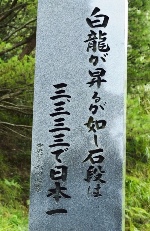 白龍が昇るが如し石段は
三、三三三で日本一